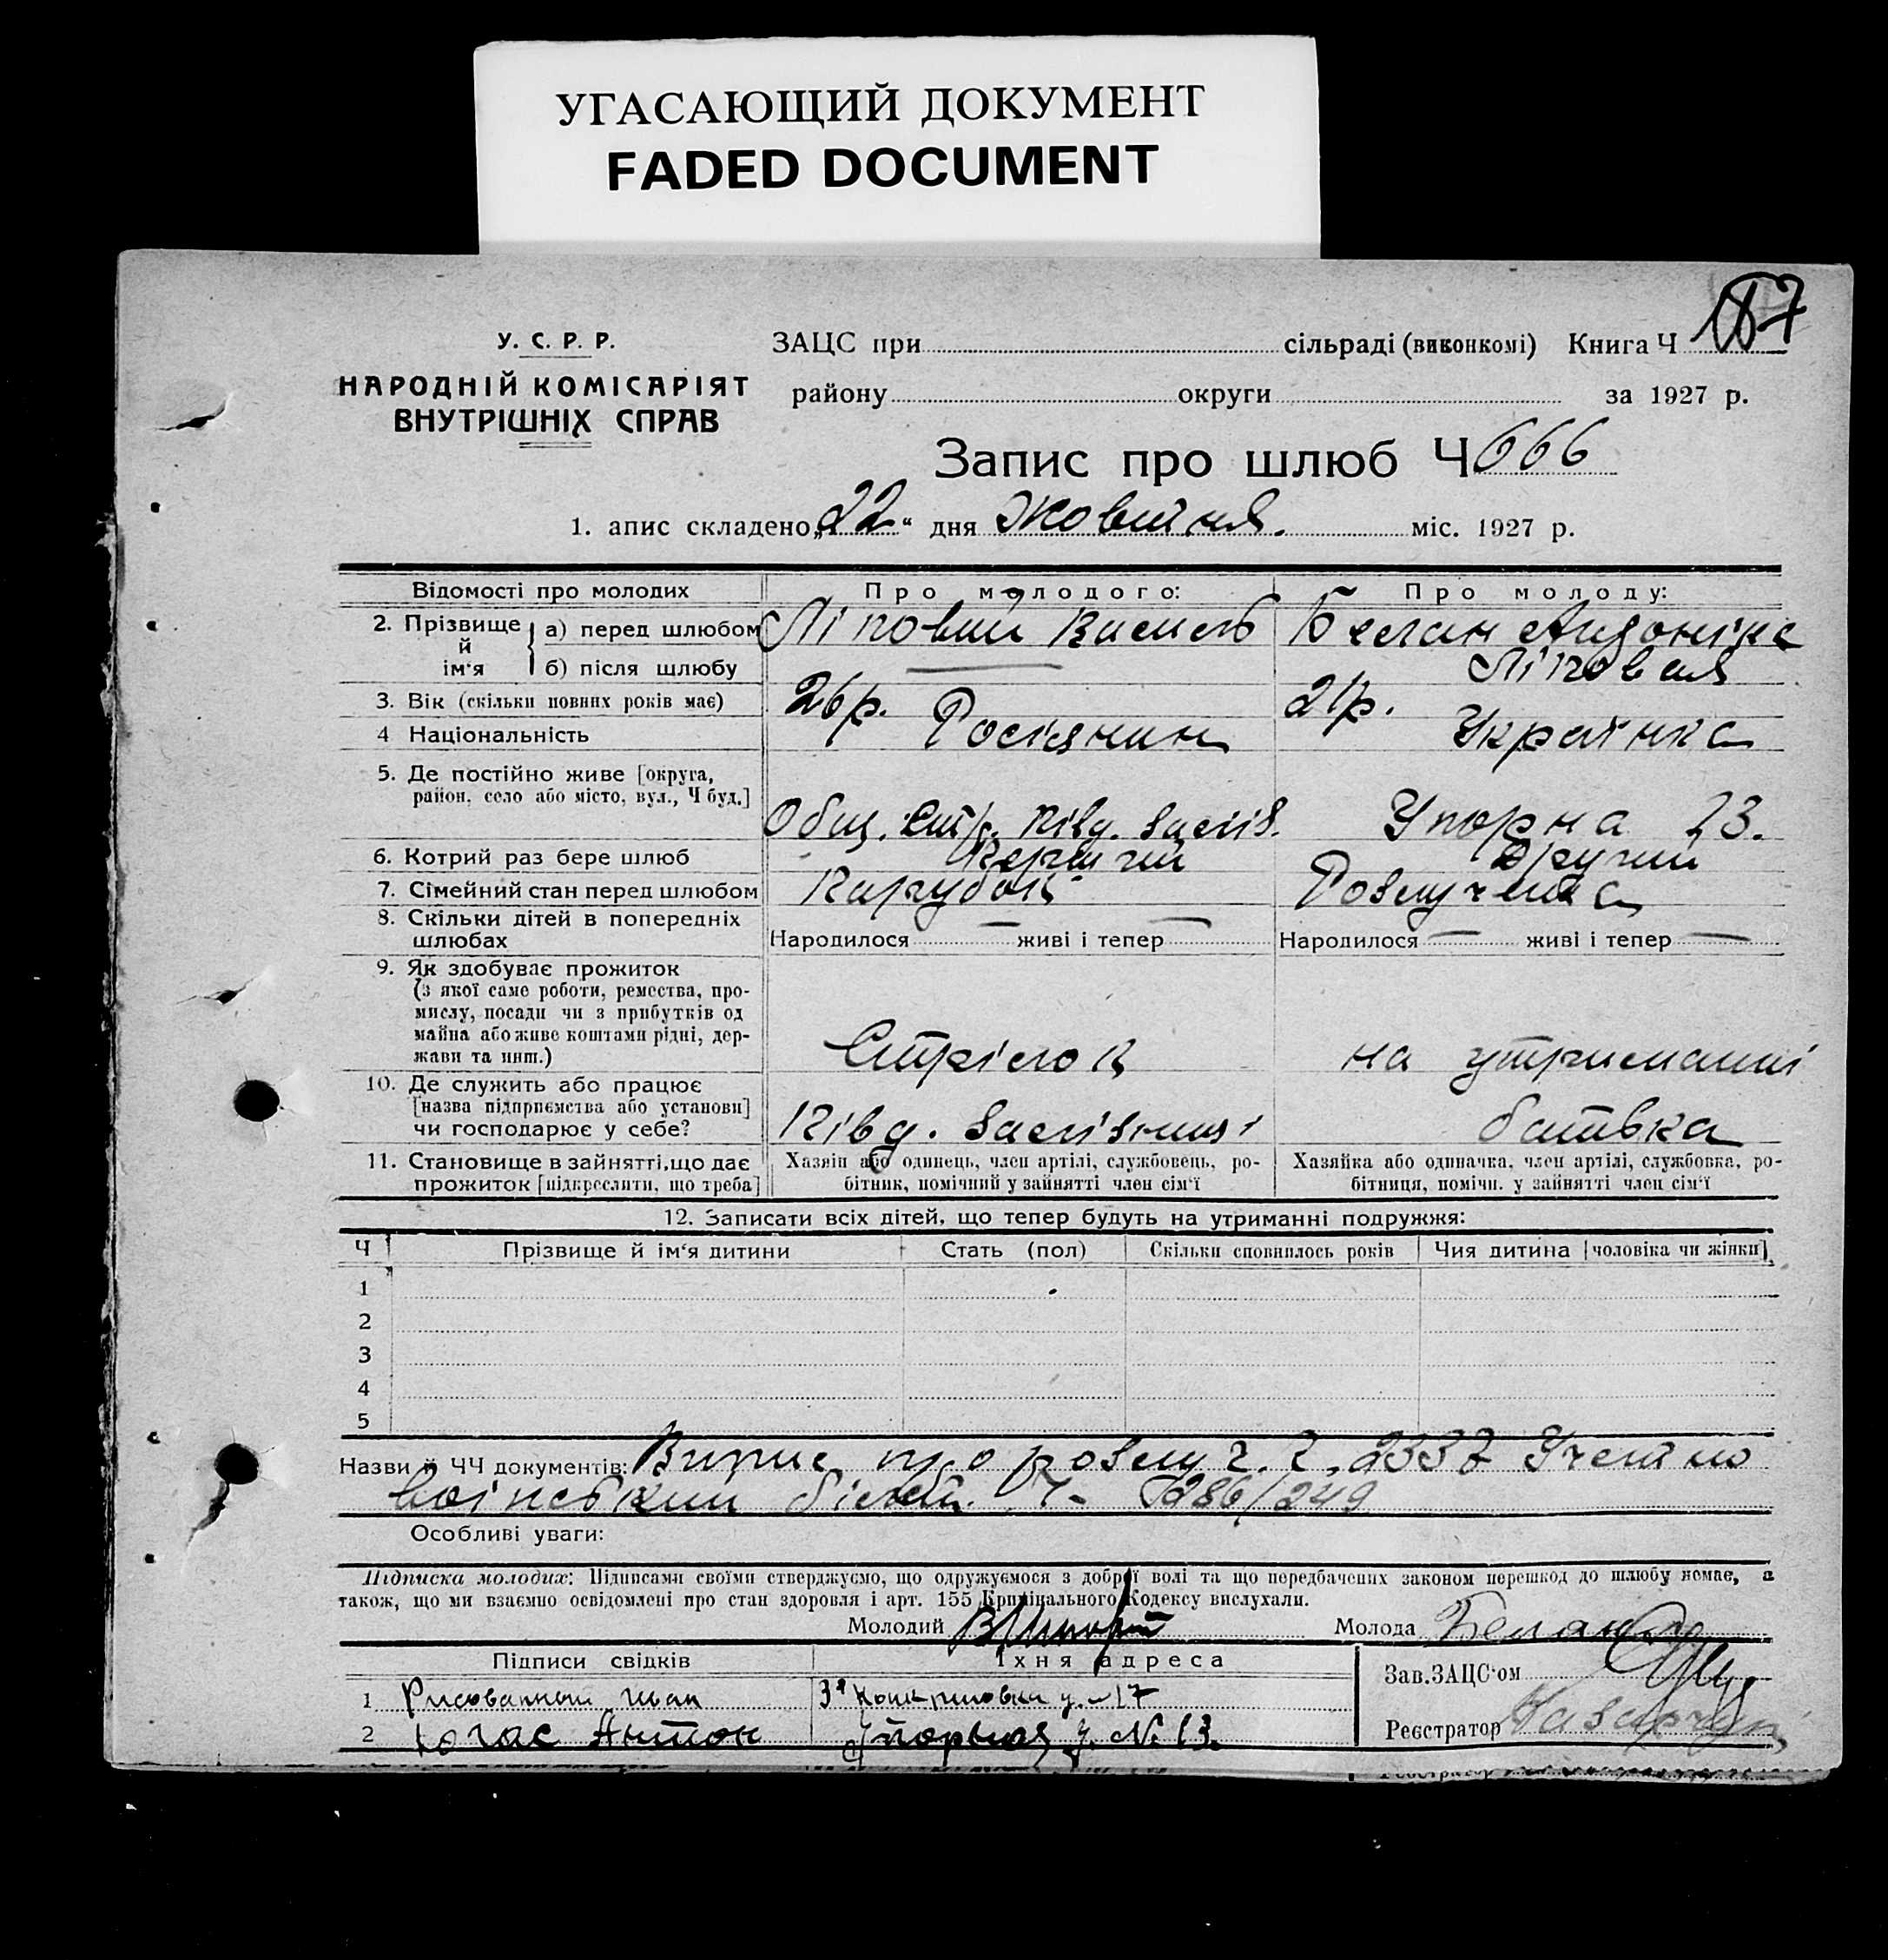 УГАСАЮЩИЙ ДОКУМЕНТ
FADED DOCUMENT
187
У. С. Р. Р.
НАРОДНІЙ КОМІСАРІЯТ
ВНУТРІШНІХ СПРАВ
ЗАЦС при сільраді (виконкомі) Книга Ч
району округи за 1927 р.
Запис про шлюб Ч 666
1. апис складено „22“ дня Жовтня. міс. 1927 р.
Відомості про молодих Про молодого: Про молоду:
2. Прізвище й ім‘я
а) перед шлюбом Ліповий Василь Белан
б) після шлюбу — Ліповая
3. Вік (скільки повних років має) 26 р. 21 р.
4 Національність Росіянин Українка
5. Де постійно живе [округа,
район, село або місто, вул., Ч буд.] Общ. Стр. Півд. Заліз. Упорна 23.
6. Котрий раз бере шлюб Перший Другий
7. Сімейний стан перед шлюбом Парубок Розлучена
8. Скільки дітей в попередніх
шлюбах Народилося — живі і тепер — Народилося — живі і тепер —
9. Як здобуває прожиток
(з якої саме роботи, ремества, про-
мислу, посади чи з прибутків од
майна або живе коштами рідні, дер-
жави та инш.) Стрілок на утриманні
10. Де служить або працює
[назва підприємства або установи]
чи господарює у себе? Півд. Залізниці батька
11. Становище в зайнятті, що дає
прожиток [підкреслити, що треба]
Хазяїн або одинець, член артілі, службовець, ро-
бітник, помічний у зайнятті член сім‘ї
Хазяйка або одиначка, член артілі, службовка, ро-
бітниця, помічн. у зайнятті член сім‘ї
12. Записати всіх дітей, що тепер будуть на утриманні подружжя:
Ч Прізвище й ім‘я дитини Стать (пол) Скільки сповнилось років Чия дитина [чоловіка чи жінки]
1
2
3
4
5
Назви й ЧЧ документів: Випис про розлуч. Ч. 2337
воінський білет. Ч- 1286/249
Особливі уваги:
Підписка молодих: Підписами своїми стверджуємо, що одружуємося з доброї волі та що передбачених законом перешкод до шлюбу немає, а
також, що ми взаємно освідомлені про стан здоровля і арт. 155 Кримінального Кодексу вислухали.
Молодий Молода Белан
Підписи свідків Їхня адреса
Зав. ЗАЦС‘ом
1 Рисованный Иван
2 Антон Упорная у. № 13.
Реєстратор